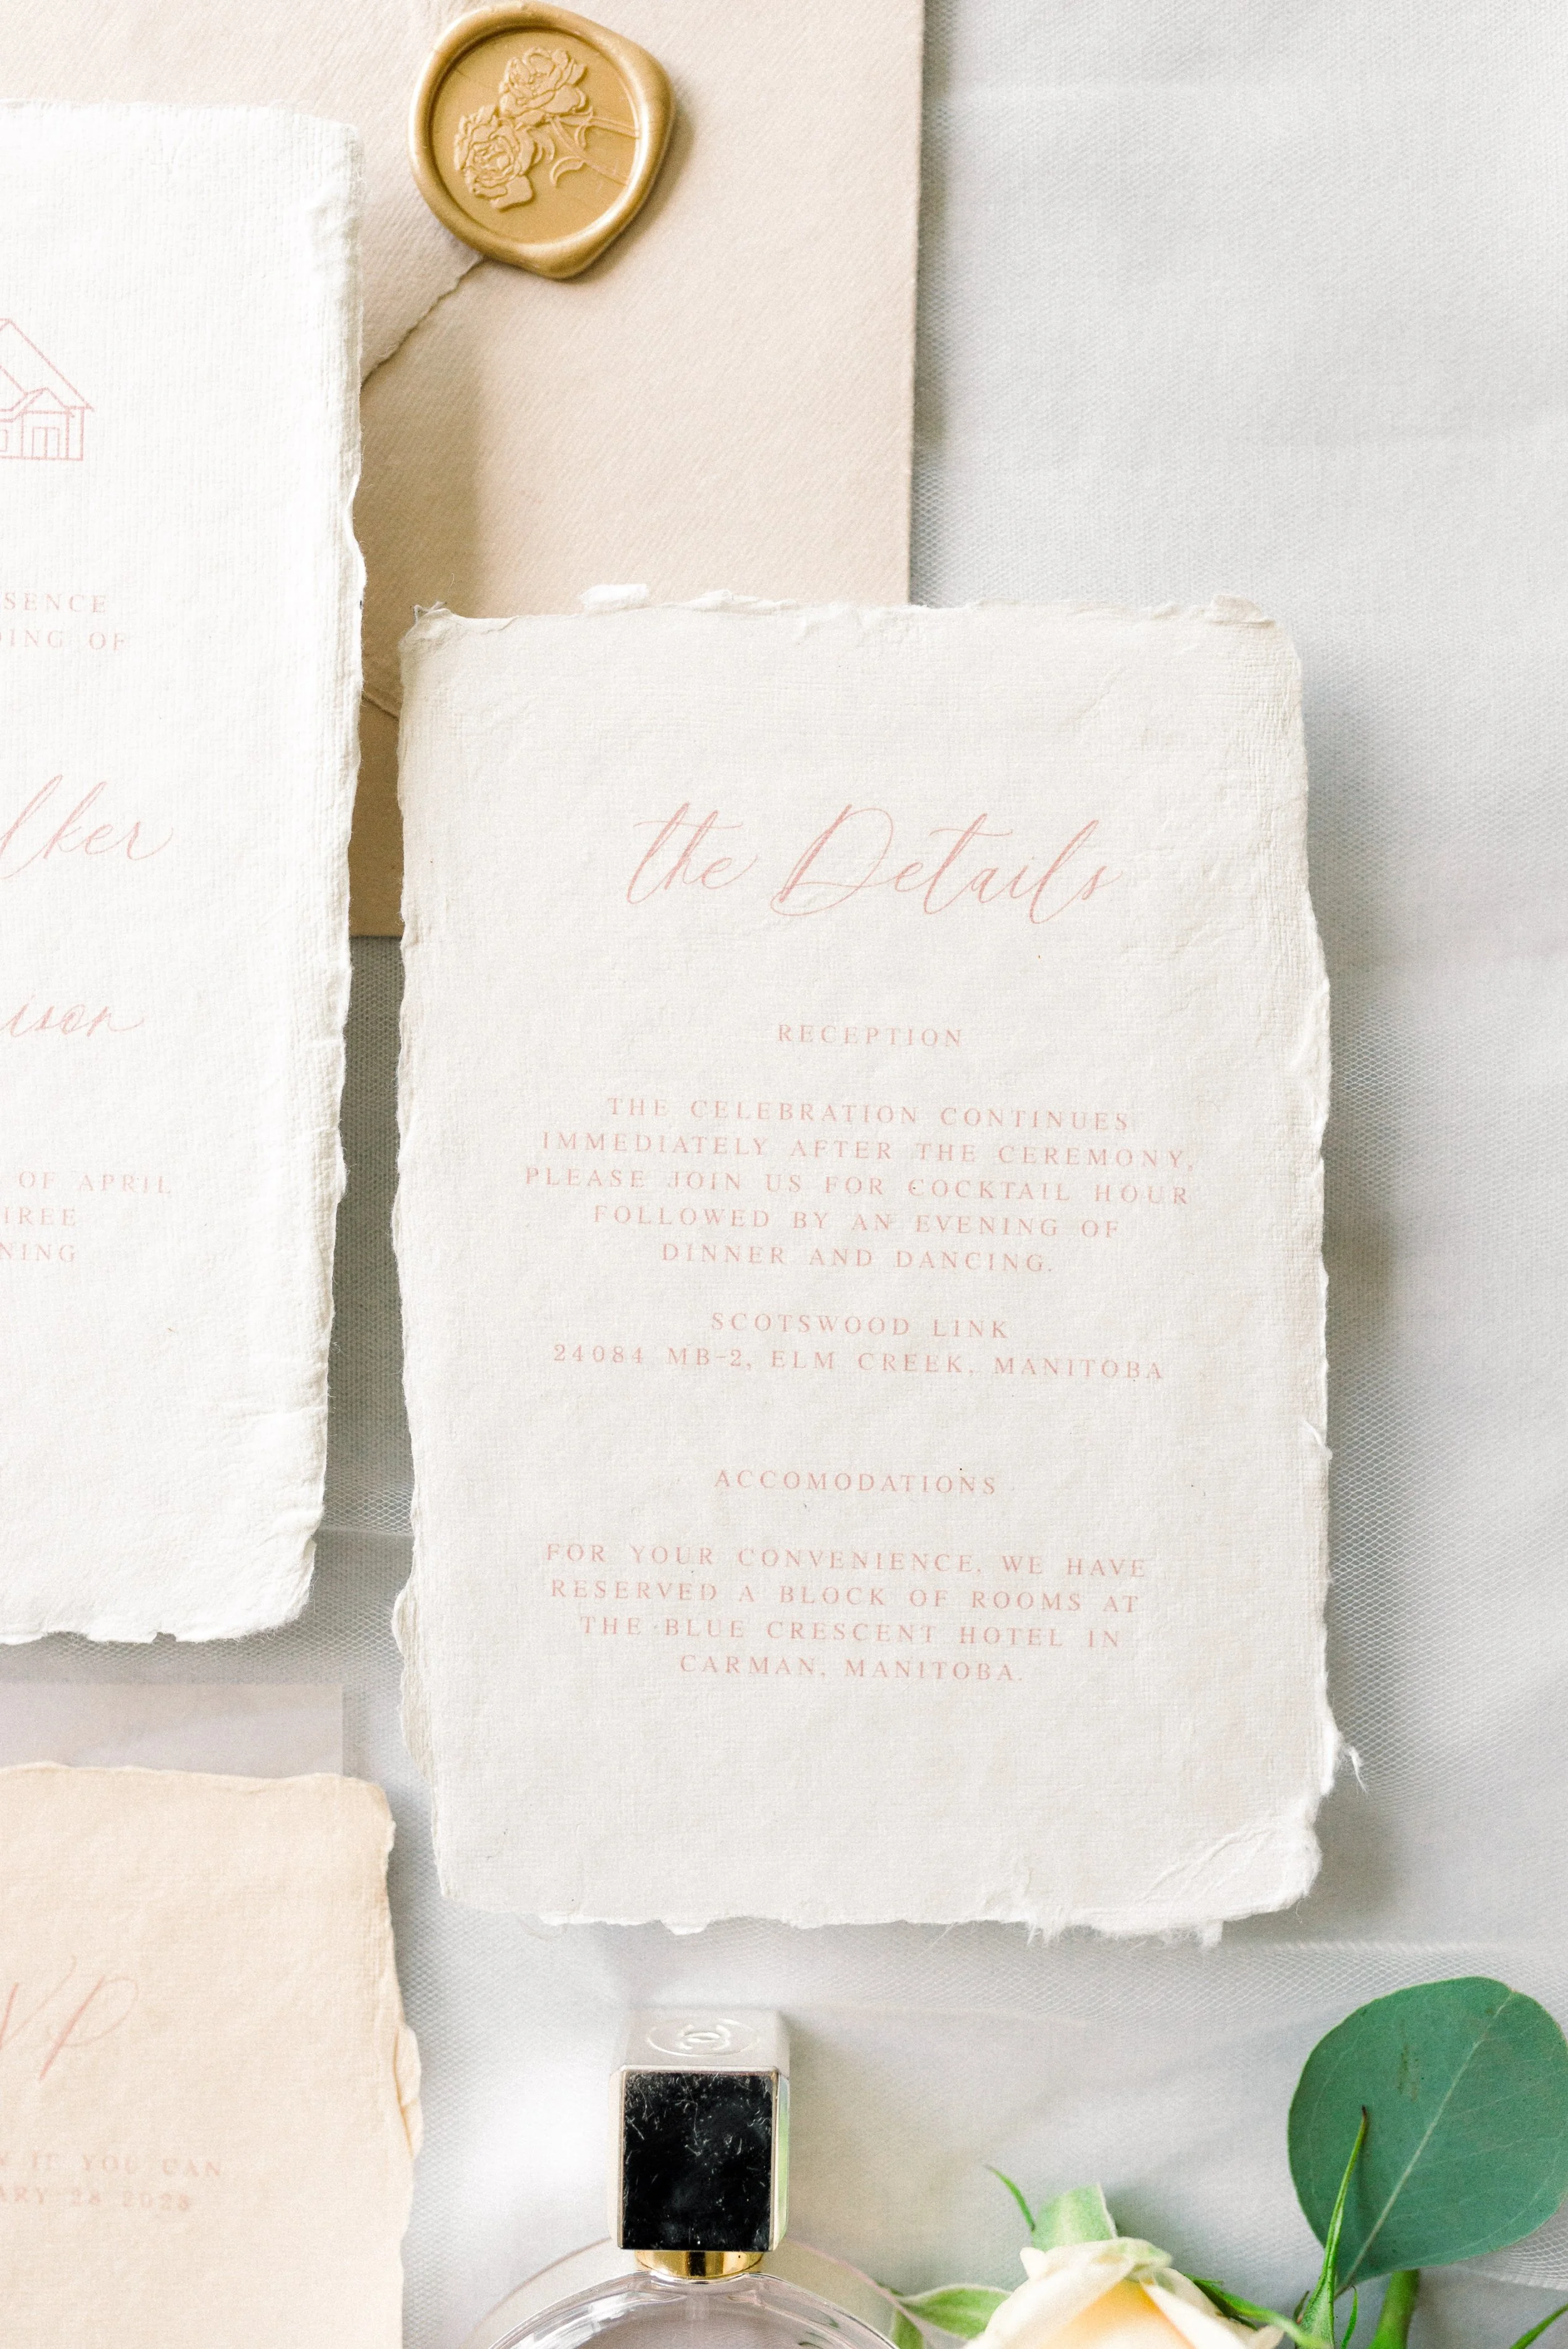 OF
the Details
RECEPTION
THE CELEBRATION CONTINUES
IMMEDIATELY AFTER THE CEREMONY,
PLEASE JOIN US FOR COCKTAIL HOUR
FOLLOWED BY AN EVENING OF
DINNER AND DANCING.
SCOTSWOOD LINK
24084 MB-2, ELM CREEK, MANITOBA
ACCOMODATIONS
FOR YOUR CONVENIENCE, WE HAVE
RESERVED A BLOCK OF ROOMS AT
THE BLUE CRESCENT HOTEL IN
CARMAN, MANITOBA.
OF APRIL
IF YOU CAN
28 2023